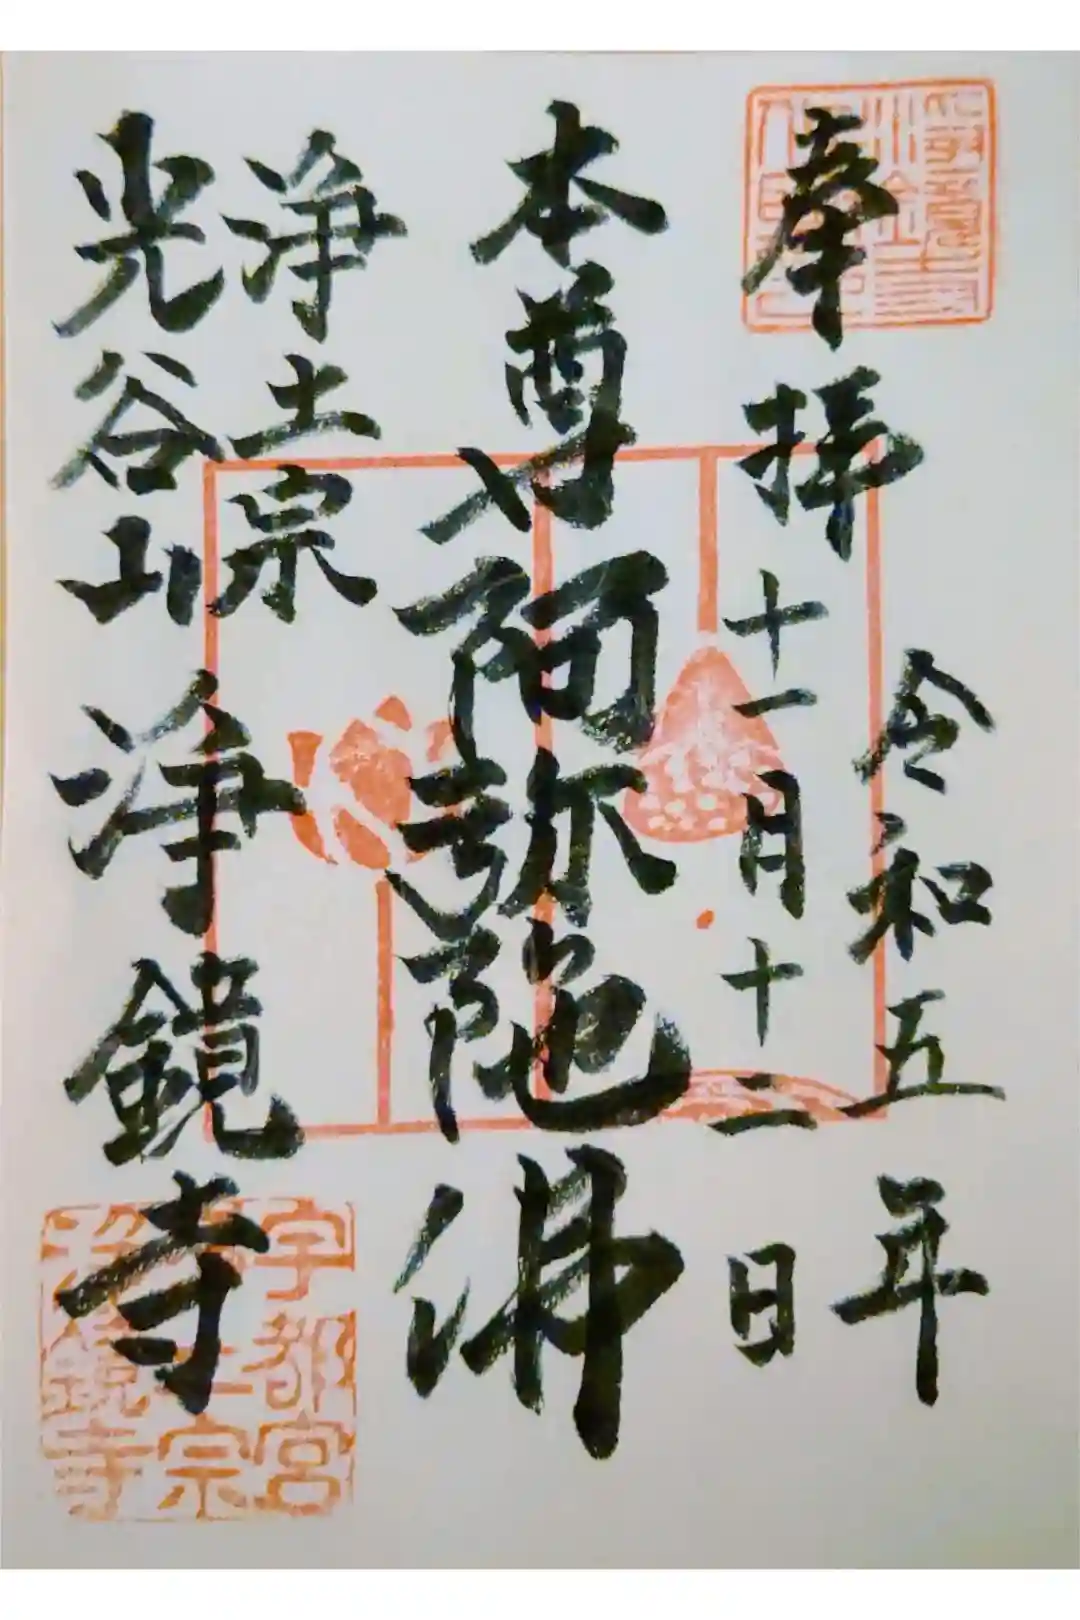 奉拝
令和五年
十一月十二日
本尊
阿弥陀佛
浄土宗
光谷山 浄鏡寺
宇都宮
浄土宗
浄鏡寺